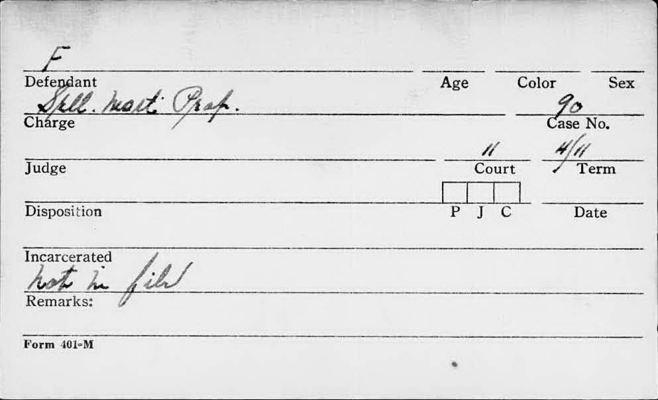 F
Defendant Age Color Sex
Sell. Mort. Prop. 90
Charge Case No.
11 4/11
Judge Court Term
Disposition P J C Date
Incarcerated
Not in file
Remarks:
Form 401-M